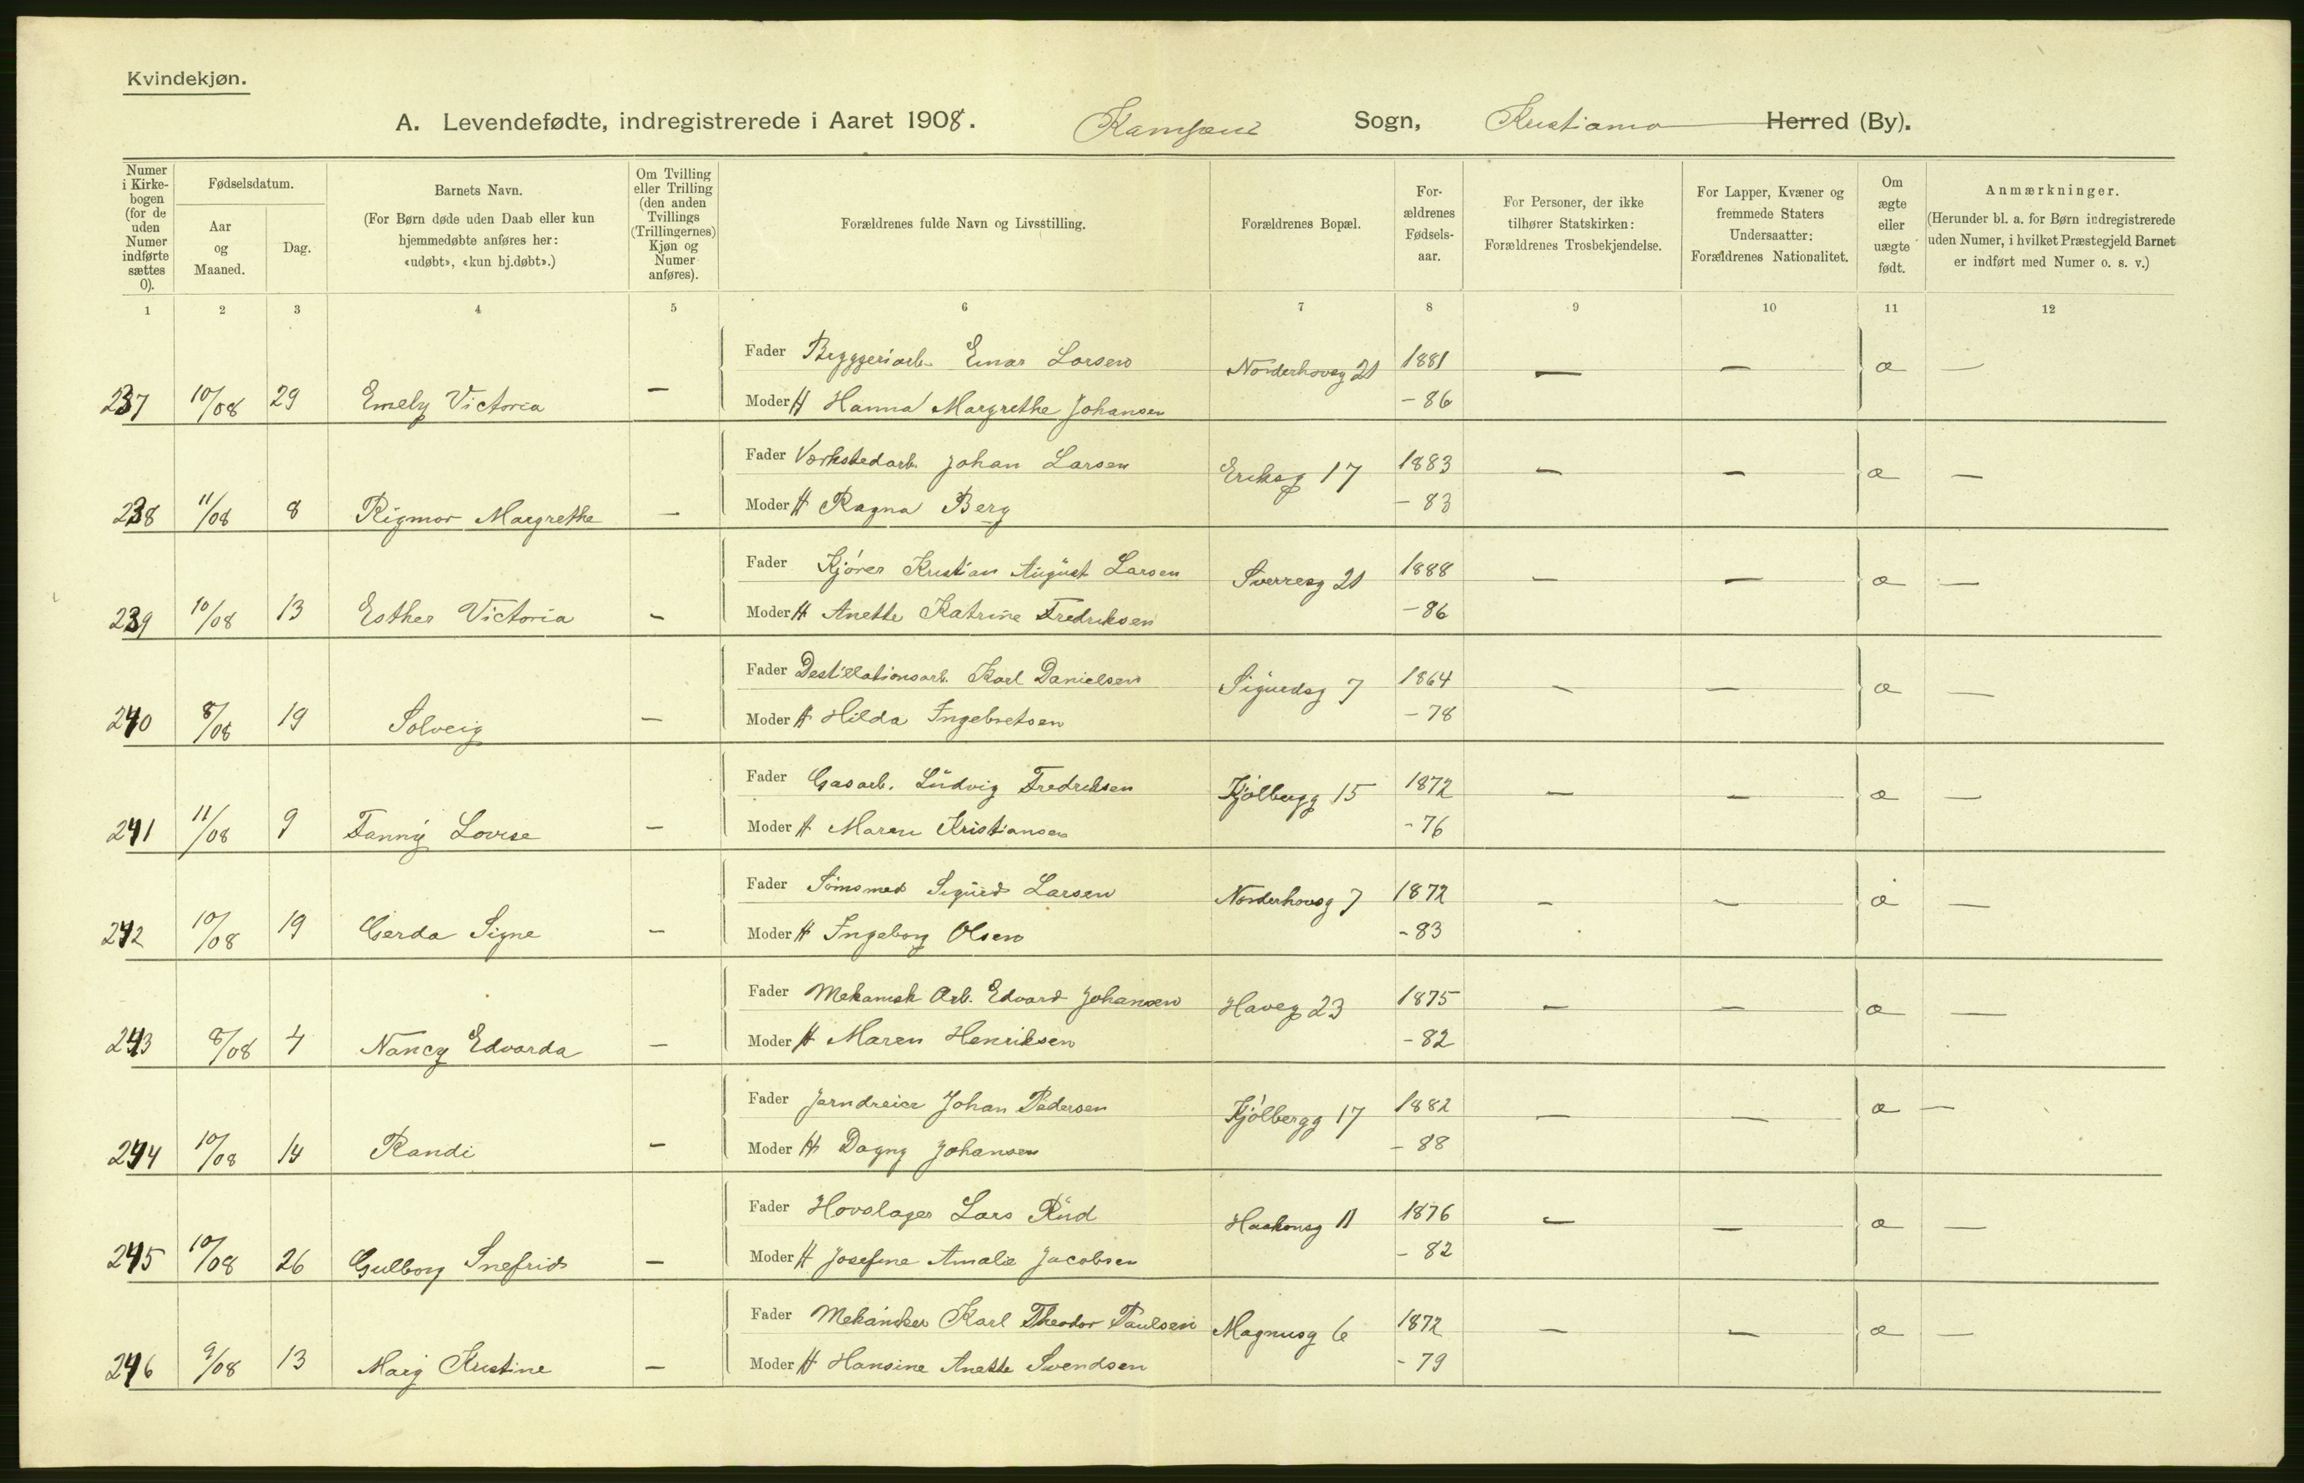 Kvindekjøn.
A. Levendefødte, indregistrerede i Aaret 1908. Kampens Sogn, Kristiania Herred (By).
Numer i Kirkebogen (for de uden Numer indførte sættes 0).
Fødselsdatum.
Aar og Maaned.
Dag.
Barnets Navn.
(For Børn døde uden Daab eller kun hjemmedøbte anføres her: «udøbt», «kun bj.døbt».)
Om Tvilling eller Trilling (den anden Tvillings (Trillingernes) Kjøn og Numer anføres).
Forældrenes fulde Navn og Livsstilling.
Forældrenes Bopæl.
Forældrenes Fødselsaar.
For Personer, der ikke tilhører Statskirken: Forældrenes Trosbekjendelse.
For Lapper, Kvæner og fremmede Staters Undersaatter: Forældrenes Nationalitet.
Om ægte eller uægte født.
Anmærkninger.
(Herunder bl. a. for Børn indregistrerede uden Numer, i hvilket Præstegjeld Barnet er indført med Numer o. s. v.)
1 2 3 4 5 6 7 8 9 10 11 12
Fader Bryggeriarb. Einar Larsen Norderhovsg 21 1881 — — æ —
237 10/08 29 Emely Victoria — Moder H Hanna Margrethe Johansen - 86
Fader Værkstedarb. Johan Larsen Eriksg 17 1883 — — æ —
238 11/08 8 Rigmor Margrethe — Moder H Ragna Berg - 83
Fader Kjører Kristian August Larsen Sverresg 21 1888 — — æ —
239 10/08 13 Esther Victoria — Moder H Anette Katrine Fredriksen - 86
Fader Destillationsarb. Karl Danielsen Sigurdsg 7 1864 — — æ —
240 8/08 19 Solveig — Moder H Hilda Ingebretsen - 78
Fader Gasarb. Ludvig Fredriksen Kjølbergg 15 1872 — — æ —
241 11/08 9 Fanny Lovise — Moder H Maren Kristiansen - 76
Fader Sømsmed Sigurd Larsen Norderhovsg 7 1872 — — æ —
242 10/08 19 Gerda Signe — Moder H Ingeborg Olsen - 83
Fader Mekanisk Arb. Edvard Johansen Haveg 23 1875 — — æ —
243 8/08 4 Nancy Edvarda — Moder H Maren Henriksen - 82
Fader Jerndreier Johan Pedersen Kjølbergg 17 1882 — — æ —
244 10/08 14 Randi — Moder H Dagny Johansen - 88
Fader Hovslager Lars Rud Haakonsg 11 1876 — — æ —
245 10/08 26 Gulborg Snefrid — Moder H Josefine Amalie Jacobsen - 82
Fader Mekaniker Karl Theodor Paulsen Magnusg 6 1872 — — æ —
246 9/08 13 Mary Kristine — Moder H Hansine Anette Svendsen - 79